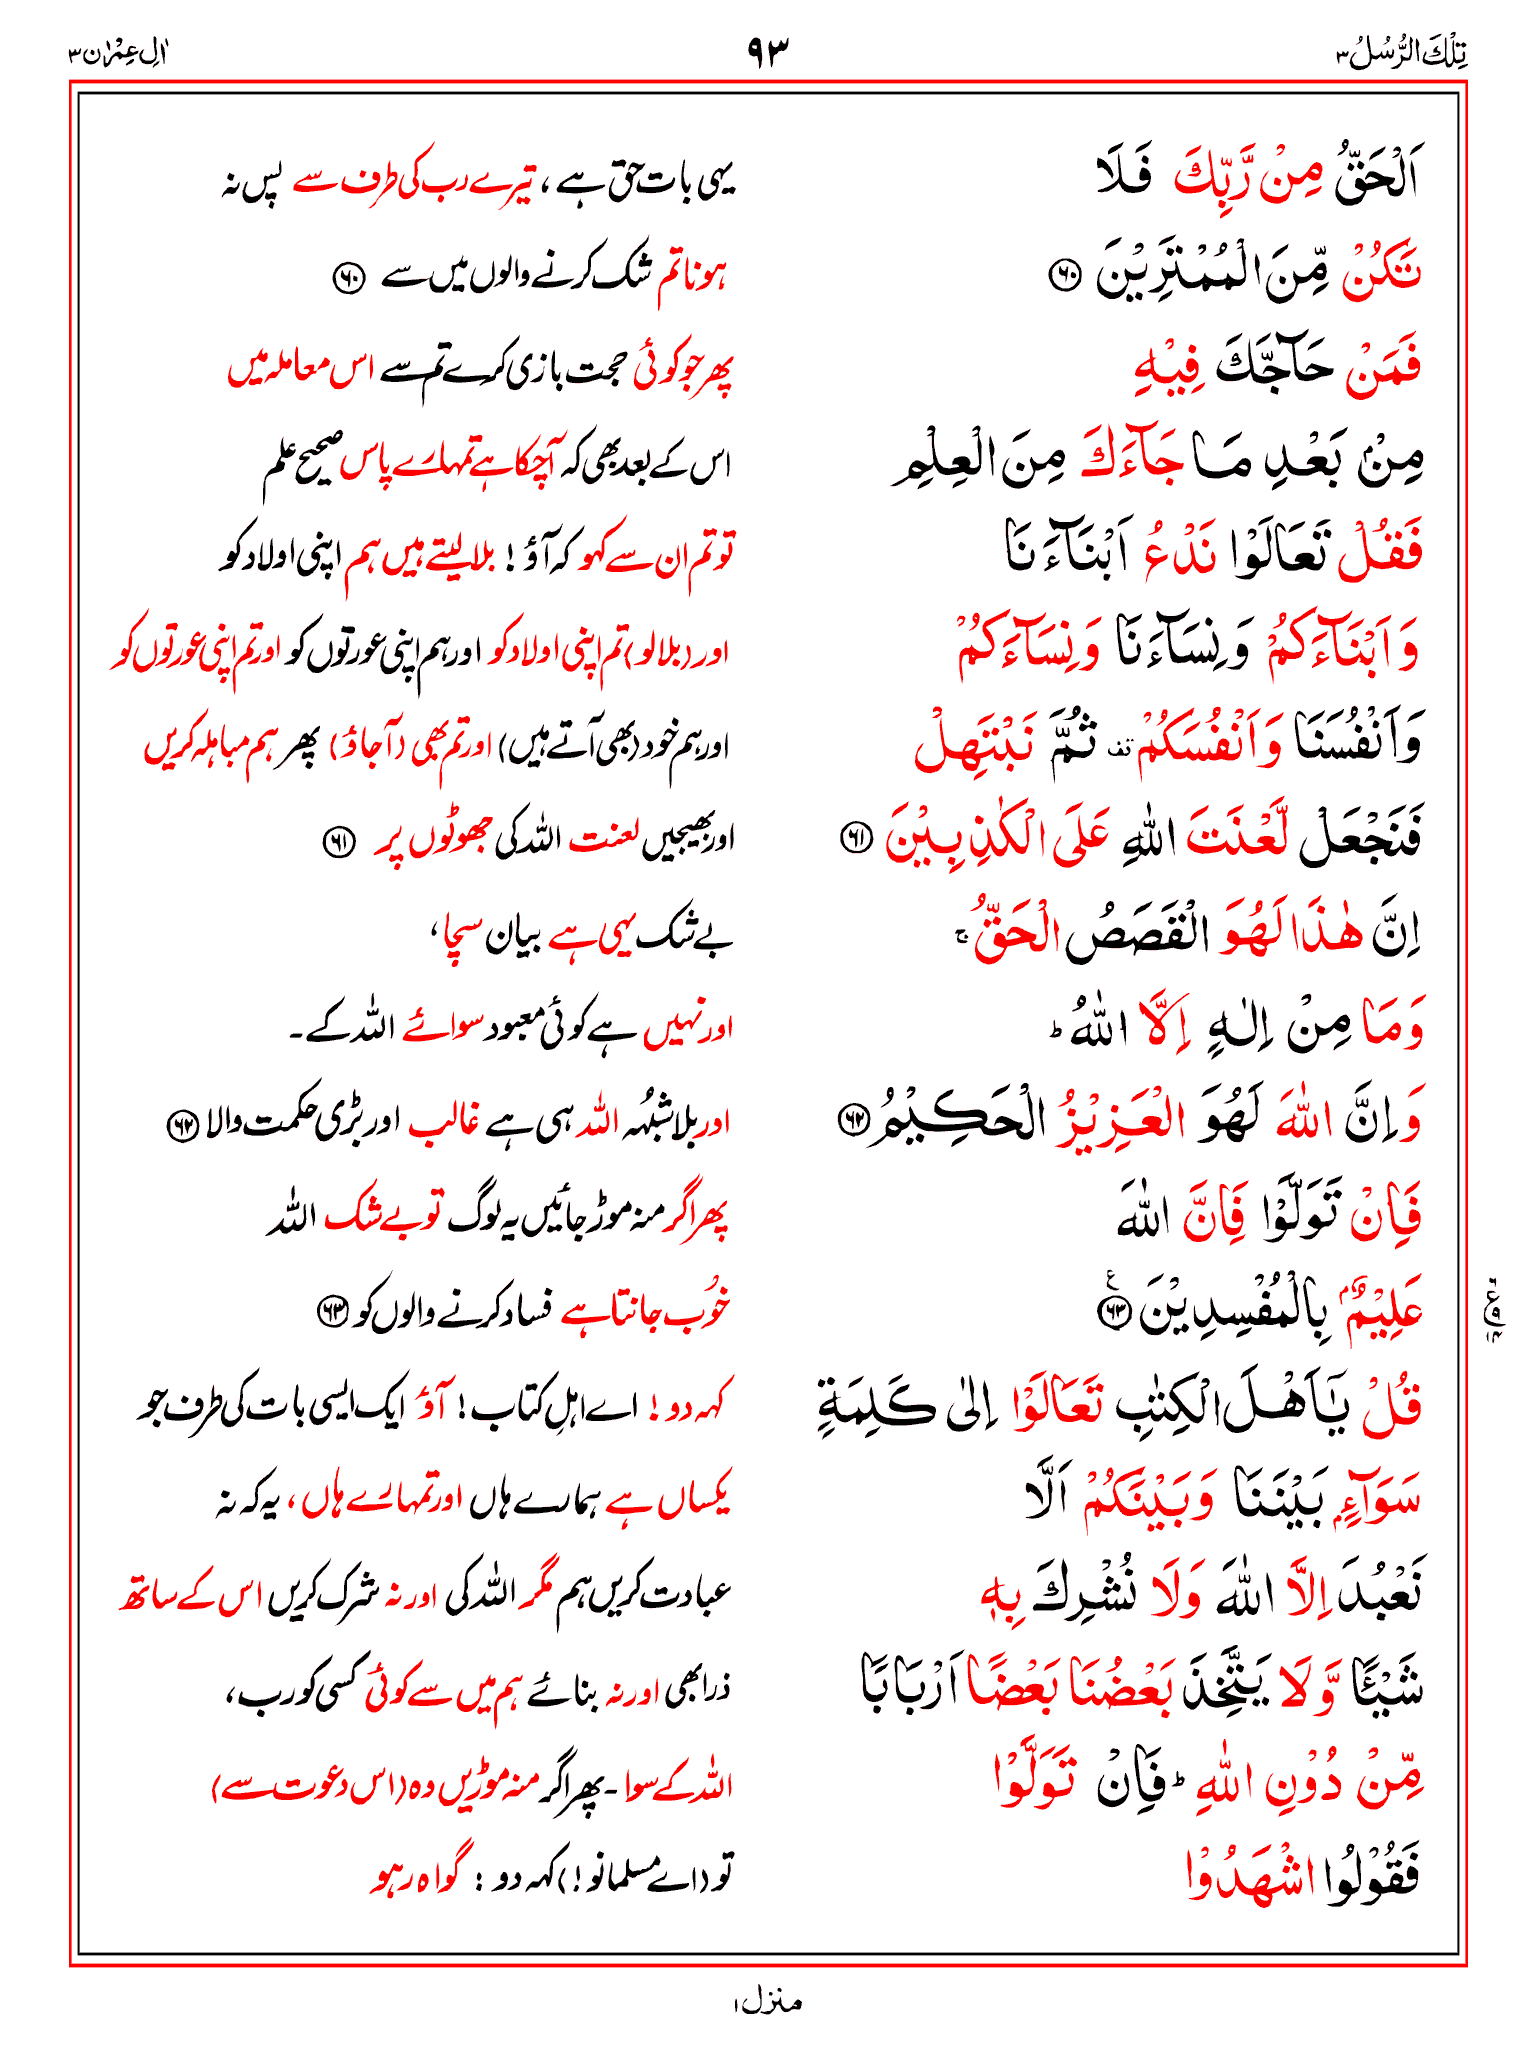 تِلْكَ الرُّسُلُ ٣ ٩٣ اٰلِ عِمْرٰن ٣
اَلْحَقُّ مِنْ رَّبِّكَ فَلَا یہی بات حق ہے، تیرے رب کی طرف سے پس نہ
تَكُنْ مِّنَ الْمُمْتَرِيْنَ ۶۰ ہونا تم شک کرنے والوں میں سے ۶۰
فَمَنْ حَآجَّكَ فِيْهِ پھر جو کوئی حجت بازی کرے تم سے اس معاملہ میں
مِنْۢ بَعْدِ مَا جَآءَكَ مِنَ الْعِلْمِ اس کے بعد بھی کہ آچکا ہے تمہارے پاس صحیح علم
فَقُلْ تَعَالَوْا نَدْعُ اَبْنَآءَنَا تو تم ان سے کہو کہ آؤ! بلا لیتے ہیں ہم اپنی اولاد کو
وَاَبْنَآءَكُمْ وَنِسَآءَنَا وَنِسَآءَكُمْ اور (بلالو) تم اپنی اولاد کو اور ہم اپنی عورتوں کو اور تم اپنی عورتوں کو
وَاَنْفُسَنَا وَاَنْفُسَكُمْ ۟ قف ثُمَّ نَبْتَهِلْ اور ہم خود (بھی آتے ہیں) اور تم بھی (آجاؤ) پھر ہم مباہلہ کریں
فَنَجْعَلْ لَّعْنَتَ اللّٰهِ عَلَى الْكٰذِبِيْنَ ۶۱ اور بھیجیں لعنت اللہ کی جھوٹوں پر ۶۱
اِنَّ هٰذَا لَهُوَ الْقَصَصُ الْحَقُّ ۚ بے شک یہی ہے بیان سچا،
وَمَا مِنْ اِلٰهٍ اِلَّا اللّٰهُ ؕ اور نہیں ہے کوئی معبود سوائے اللہ کے۔
وَاِنَّ اللّٰهَ لَهُوَ الْعَزِيْزُ الْحَكِيْمُ ۶۲ اور بلا شبُہ اللہ ہی ہے غالب اور بڑی حکمت والا ۶۲
فَاِنْ تَوَلَّوْا فَاِنَّ اللّٰهَ پھر اگر منہ موڑ جائیں یہ لوگ تو بے شک اللہ
عَلِيْمٌۢ بِالْمُفْسِدِيْنَ ۶۳ ع خوُب جانتا ہے فساد کرنے والوں کو ۶۳
قُلْ يٰۤاَهْلَ الْكِتٰبِ تَعَالَوْا اِلٰى كَلِمَةٍ کہہ دو! اے اہلِ کتاب! آؤ ایک ایسی بات کی طرف جو
سَوَآءٍۢ بَيْنَنَا وَبَيْنَكُمْ اَلَّا یکساں ہے ہمارے ہاں اور تمہارے ہاں، یہ کہ نہ
نَعْبُدَ اِلَّا اللّٰهَ وَلَا نُشْرِكَ بِهٖ عبادت کریں ہم مگر اللہ کی اور نہ شرک کریں اس کے ساتھ
شَيْـًٔا وَّلَا يَتَّخِذَ بَعْضُنَا بَعْضًا اَرْبَابًا ذرا بھی اور نہ بنائے ہم میں سے کوئی کسی کو رب،
مِّنْ دُوْنِ اللّٰهِ ؕ فَاِنْ تَوَلَّوْا اللہ کے سوا۔ پھر اگر منہ موڑیں وہ (اس دعوت سے)
فَقُوْلُوا اشْهَدُوْا تو (اے مسلمانو!) کہہ دو: گواہ رہو
منزل ١